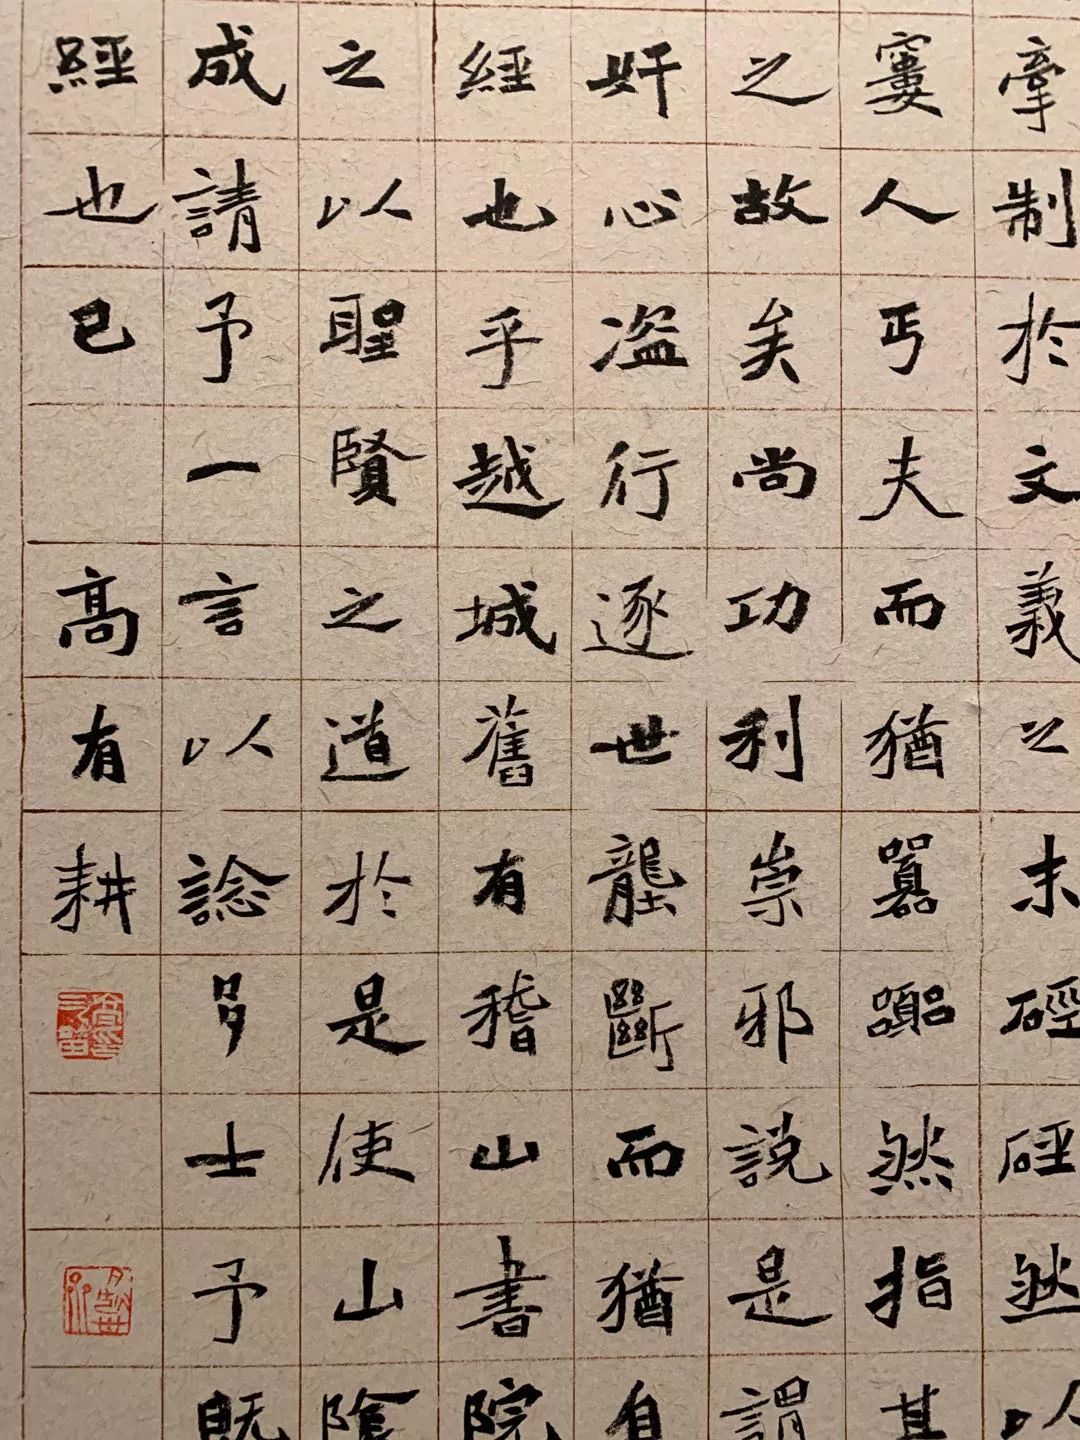 牽制於文義之末硜硜然以
窶人丐夫而猶囂囂然指其
之故矣尚功利崇邪說是謂
奸心盗行逐世壟斷而猶自
經也乎越城舊有稽山書院
之以聖賢之道於是使山陰
成請予一言以諗多士予既
經也已 高有耕